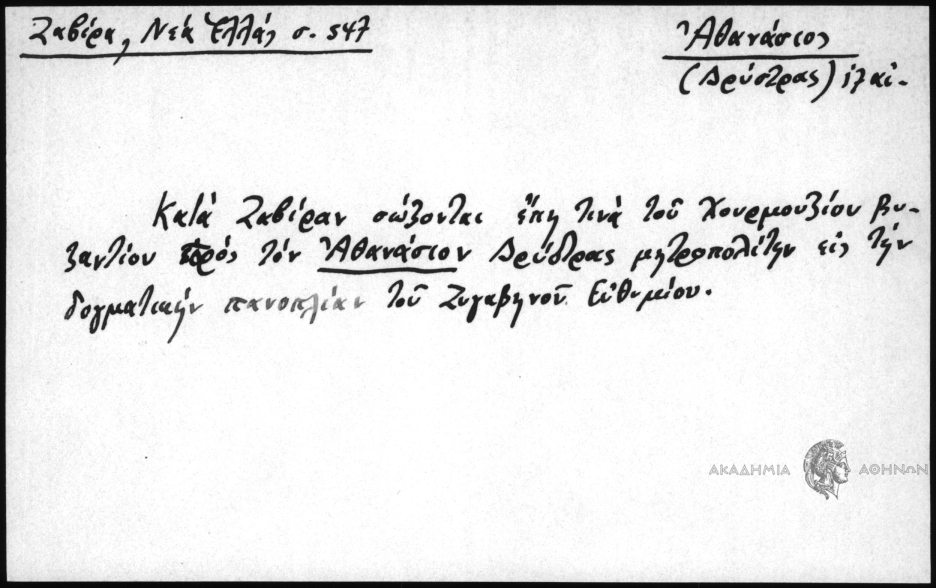 Ζαβίρα, Νέα Ἑλλάς σ. 547
Ἀθανάσιος
(Δρύστρας)
Κατά Ζαβίραν σώζονται ἔπη τινά τοῦ Χουρμουζίου Βυ-
ζαντίου πρός τόν Ἀθανάσιον Δρύστρας μητροπολίτην εἰς τήν
δογματικήν πανοπλίαν τοῦ Ζυγαβηνοῦ Εὐθυμίου.
ΑΚΑΔΗΜΙΑ ΑΘΗΝΩΝ